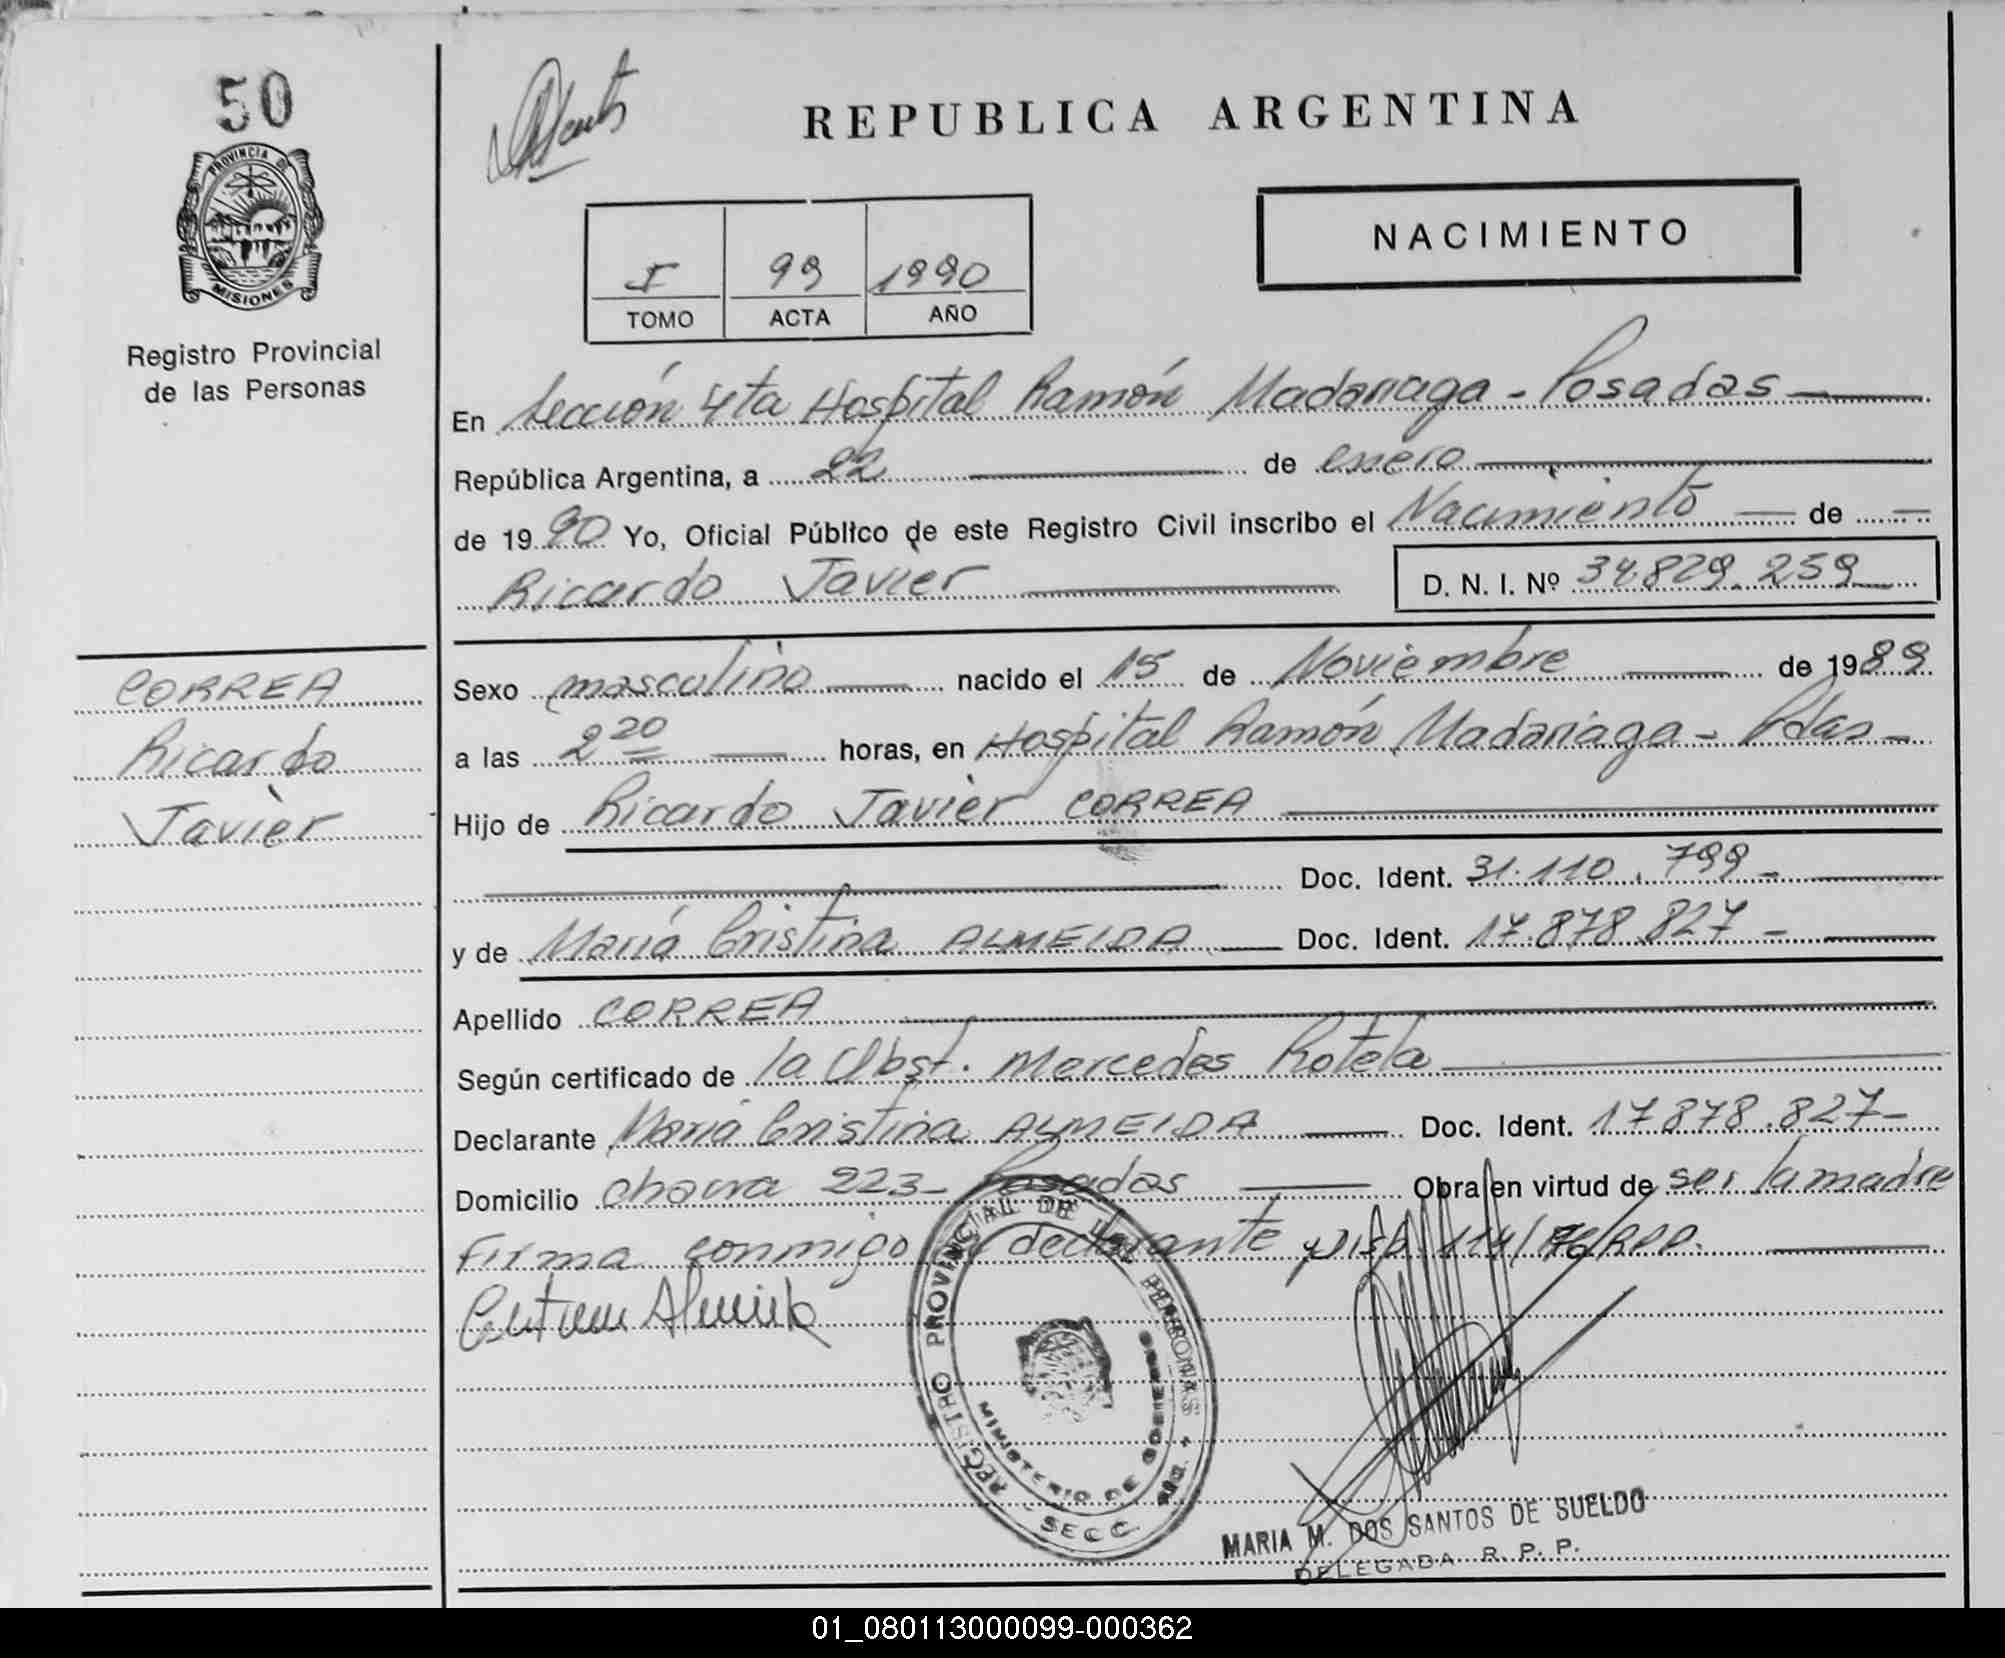 50
PROVINCIA DE
MISIONES
Registro Provincial
de las Personas
CORREA
Ricardo
Javier
REPUBLICA ARGENTINA
NACIMIENTO
I 99 1990
TOMO ACTA AÑO
En Sección 4ta Hospital Ramón Madariaga - Posadas
República Argentina, a 22 de enero
de 1990 Yo, Oficial Público de este Registro Civil inscribo el Nacimiento de
Ricardo Javier D. N. I. Nº 34.829.259
Sexo masculino nacido el 15 de Noviembre de 1989
a las 2 20 horas, en Hospital Ramón Madariaga - Pdas -
Hijo de Ricardo Javier CORREA
Doc. Ident. 31.110.799 -
y de María Cristina ALMEIDA Doc. Ident. 17.878.827 -
Apellido CORREA
Según certificado de la Obst. Mercedes Rotela
Declarante María Cristina ALMEIDA Doc. Ident. 17.878.827 -
Domicilio chacra 223 - Posadas Obra en virtud de ser la madre
Firma conmigo declarante y Disp. 114/76/RPP.
REGISTRO PROVINCIAL DE LAS PERSONAS
MINISTERIO DE GOBIERNO
SECC.
MARIA M. DOS SANTOS DE SUELDO
DELEGADA R. P. P.
01_080113000099-000362